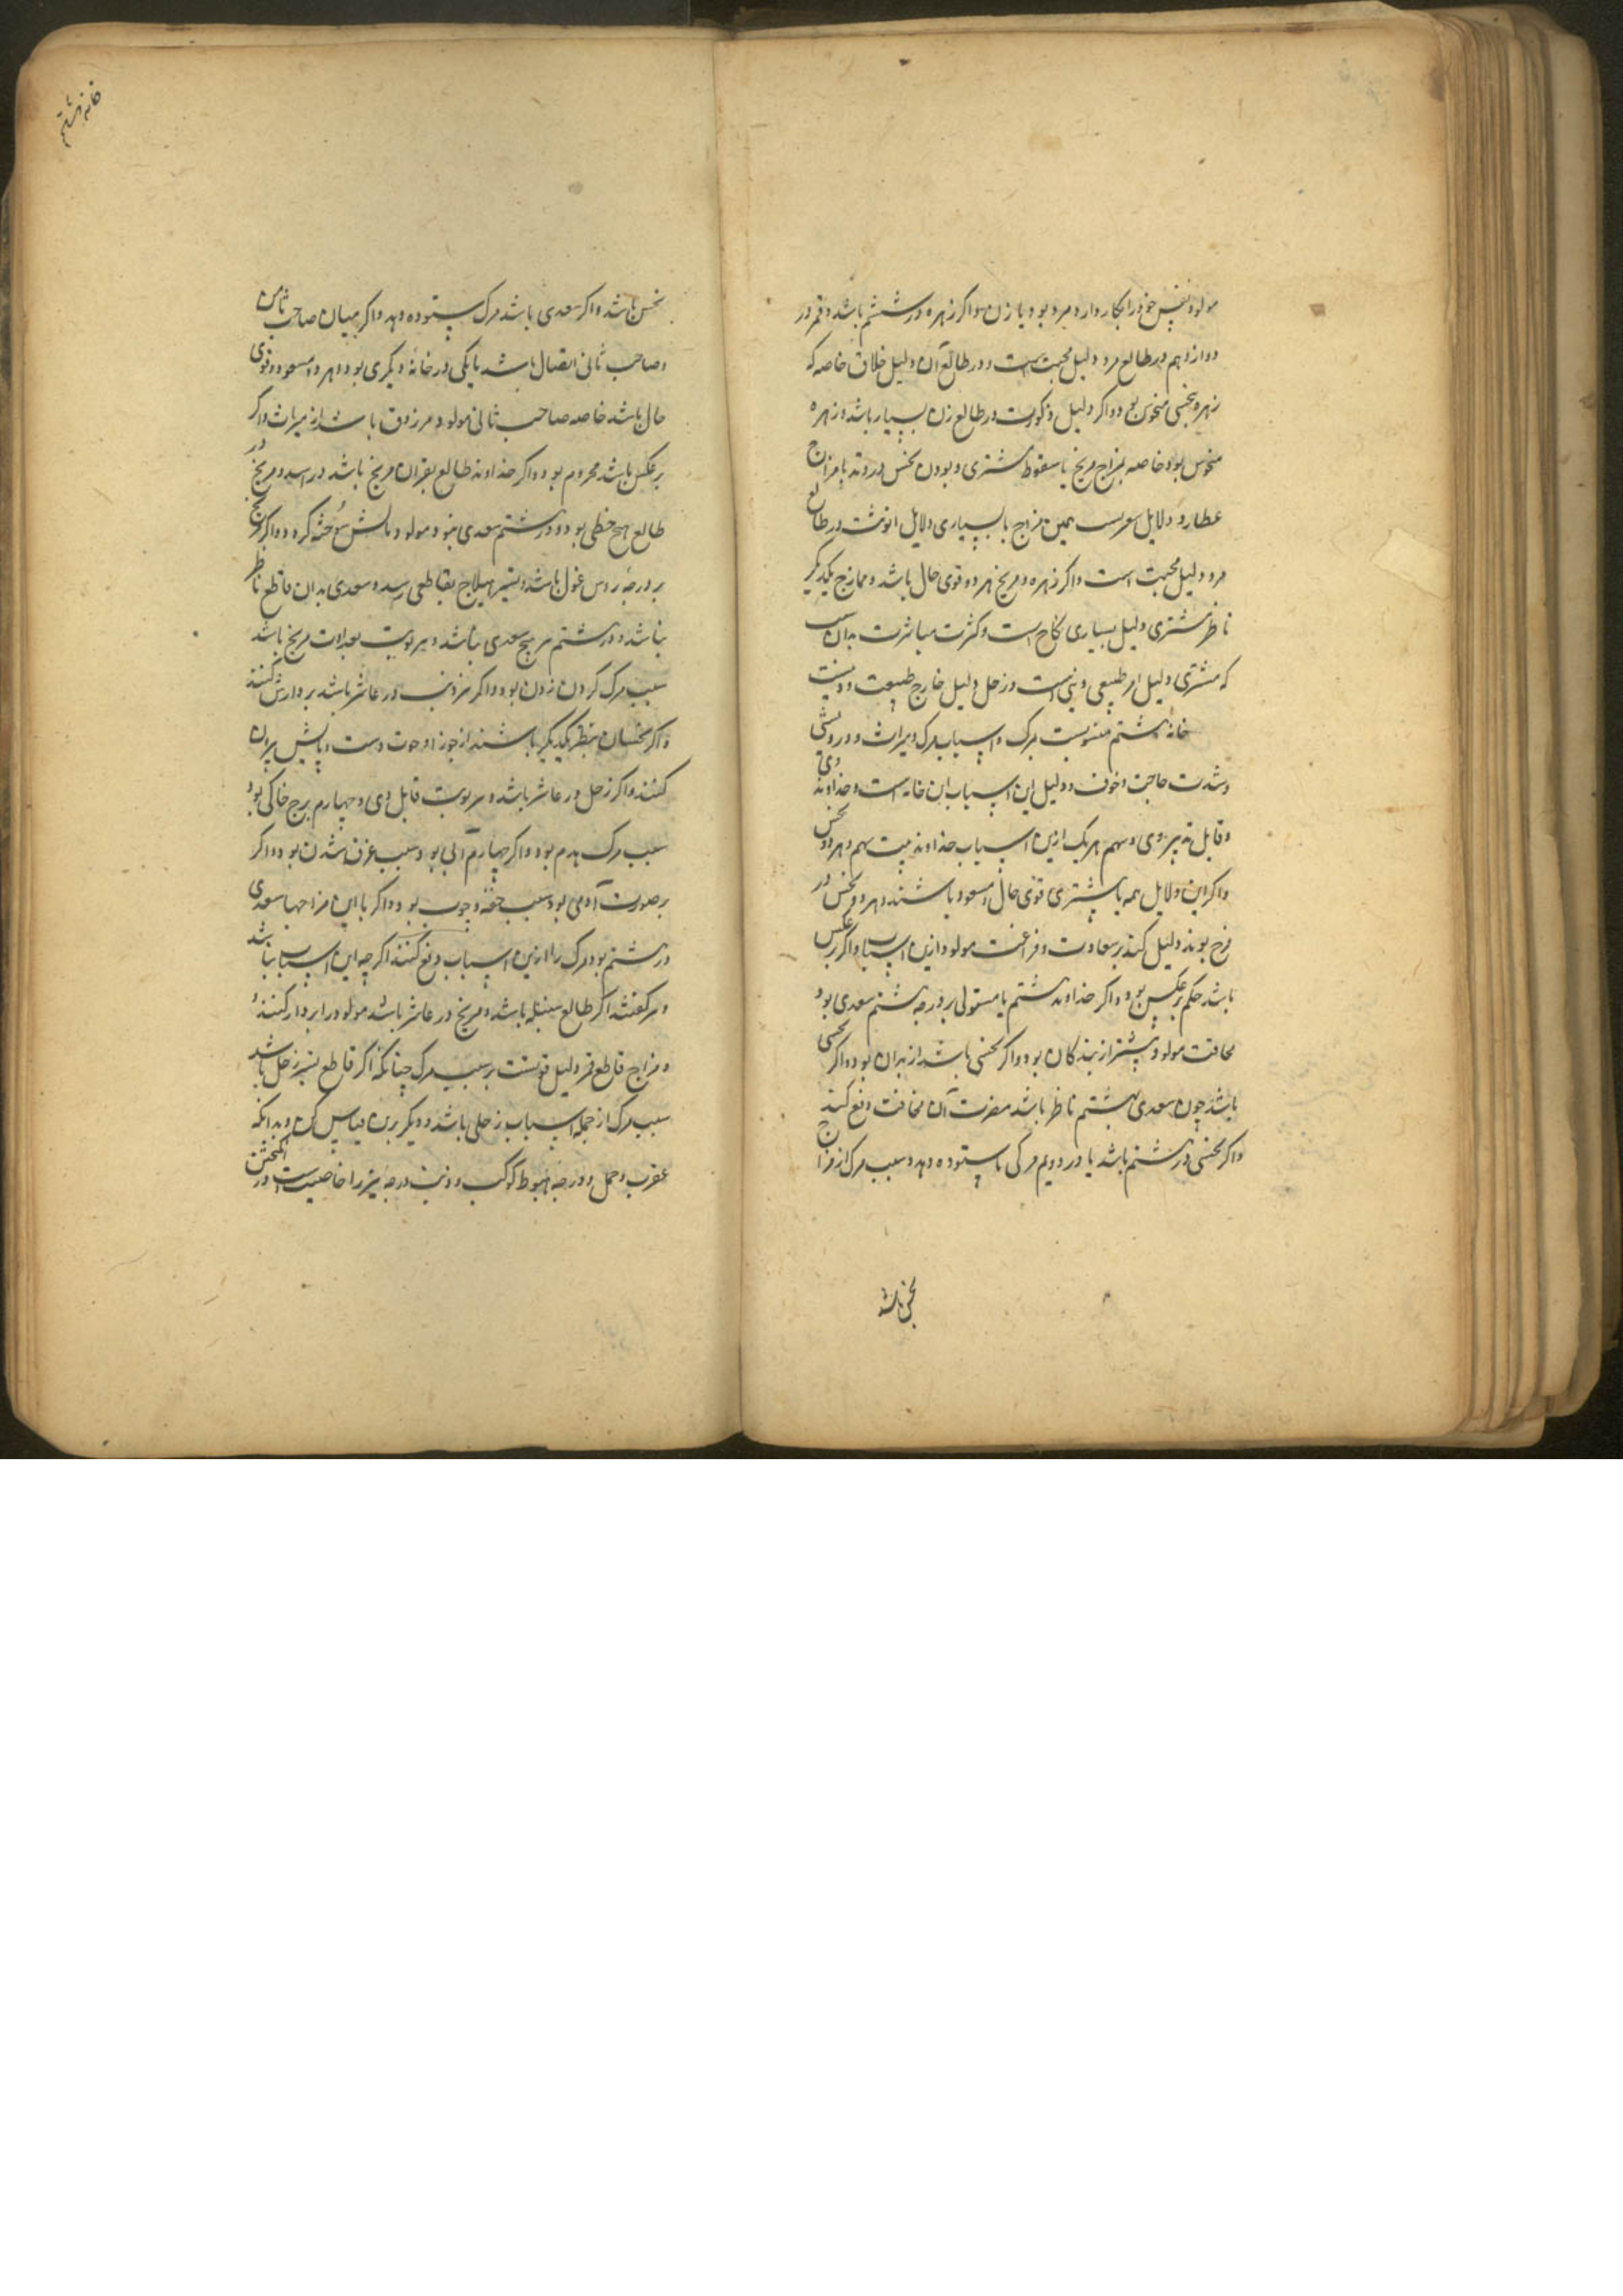 مولود نفس خود را بکار دارد مرد بود یا زن و اکر زهره در ششم باشد و قمر در
دوازدهم در طالع مرد دلیل محبت است و در طالع آن دلیل خلاف خاصه که
زهره بنحسی منحوس بود و اکر دلیل ذکورت در طالع زن بسیار باشد و زهره
منحوس بود خاصه بمزاج مریخ یا سقوط مشتری و بودن نحس در وتد یا مزاج
عطارد و دلایل همین مزاج با بسیاری دلایل انوثت در طالع
مرد دلیل محبت است و اکر زهره و مریخ هر دو قوی حال باشد و ممازج یکدیکر
ناظر مشتری دلیل بسیاری نکاح است و کثرت مباشرت بدان سبب
که مشتری دلیل امر طبیعی و بنی است و زحل دلیل خارج طبیعت و
خانه هشتم منسوبست بمرک و اسباب مرک و میراث و درویشی
و شدت حاجت و خوف و دلیل این اسباب این خانه است و خداوند وی
و قابل تدبیر وی و سهم هر یک ازین اسباب خداوند بیت سهم و هر دو نحس
و اکر این دلایل همه یا بیشتری قوی حال و مسعود باشند و هر دو نحس در
فرح بوند دلیل کند بر سعادت و فراغت مولود ازین اسباب و اکر بر عکس
باشد حکم بر عکس بود و اکر خداوند هشتم یا مستولی بر درجه هشتم سعدی بود
مخافت مولود بیشتر از نیکان بود و اکر نحسی باشد از بدان بود و اکر نحسی
باشد چون سعدی بهشتم ناظر باشد مضرت آن مخافت دفع کند
و اکر نحسی در هشتم باشد یا در دویم مرکی ناستوده دهد و سبب مرک از مزاج
نحس باشد
خانه هشتم
نحس باشد و اکر سعدی باشد مرک ستوده دهد و اکر میان صاحب ثامن
و صاحب ثانی اتصال باشد یا یکی در خانه دیکری بود و هر دو مسعود و قوی
حال باشد خاصه صاحب ثانی مولود مرزوق باشد از میراث و اکر
بر عکس باشد محروم بود و اکر خداوند طالع بقران مریخ باشد در اسد و مریخ در
طالع هیچ حظی بود و در هشتم سعدی نبود مولود را آتش سوخته کرد و اکر مریخ
بر درجه راس غول باشد و تسییر هیلاج بقاطعی رسد و سعدی بدان قاطع ناظر
نباشد و در هشتم هیچ سعدی نباشد و نوبت بعداوت مریخ باشد
سبب مرک کردن زدن بود و اکر مریخ در عاشر باشد بر دارش کنند
و اکر نحسان بنظر یکدیکر باشند از جوزا و حوت دست و پایش بریدن
کنند و اکر زحل در عاشر باشد و نوبت قابل وی و چهارم برج خاکی بود
سبب مرک هدم بود و اکر چهارم آبی بود سبب غرق شدن بود و اکر
بر صورت آدمی بود سبب خفه و چوب بود و اکر با این مزاجها سعدی
در هشتم بود مرک را ازین اسباب دفع کنند اکر چه این اسباب باشد
و کفتند اکر طالع سنبله باشد و مریخ در عاشر باشد مولود را بر دار کنند
و مزاج قاطع قمر دلیل قویست بر سبب مرک چنانکه اکر قاطع تسییر زحل باشد
سبب مرک از جمله اسباب زحلی باشد و دیکر برین قیاس کن و بدانکه
عقرب و حمل و درجه هبوط کوکب و ذنب درجه نیز را خاصیت است در